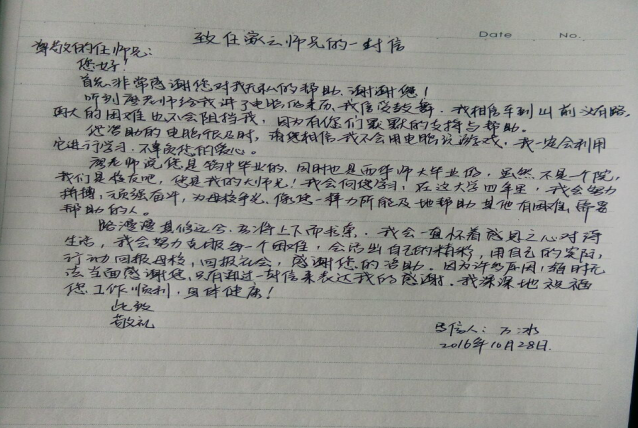 致任家云师兄的一封信
Date No.
尊敬的任师兄:
您好!
首先非常感谢您对我无私的帮助、谢谢您!
听到唐老师给我讲了电脑的来历,我倍受鼓舞。我相信车到山前必有路,
再大的困难也不会阻挡我,因为有你们默默的支持与帮助。
您资助的电脑很及时,请您相信,我不会用电脑玩游戏,我一定会利用
它进行学习,不辜负您的爱心。
唐老师说您是 中毕业的、同时也是西华师大毕业的,虽然不是一个院,
我们是校友吧,您是我的大师兄!我会向您学习,在这大学四年里,我会努力
拼搏,顽强奋斗,为母校争光,像您一样力所能及地帮助其他有困难需要
帮助的人。
路漫漫其修远兮,吾将上下而求索。我会一直怀着感恩之心对待
生活,我会努力克服每一个困难,会活出自己的精彩,用自己的实际
行动回报母校,回报社会,感谢您的资助。因为许多原因,暂时无
法当面感谢您,只有通过一封信来表达我的感谢。我深深地祝福
您工作顺利,身体健康!
此致
敬礼
写信人:
2016年10月28日.